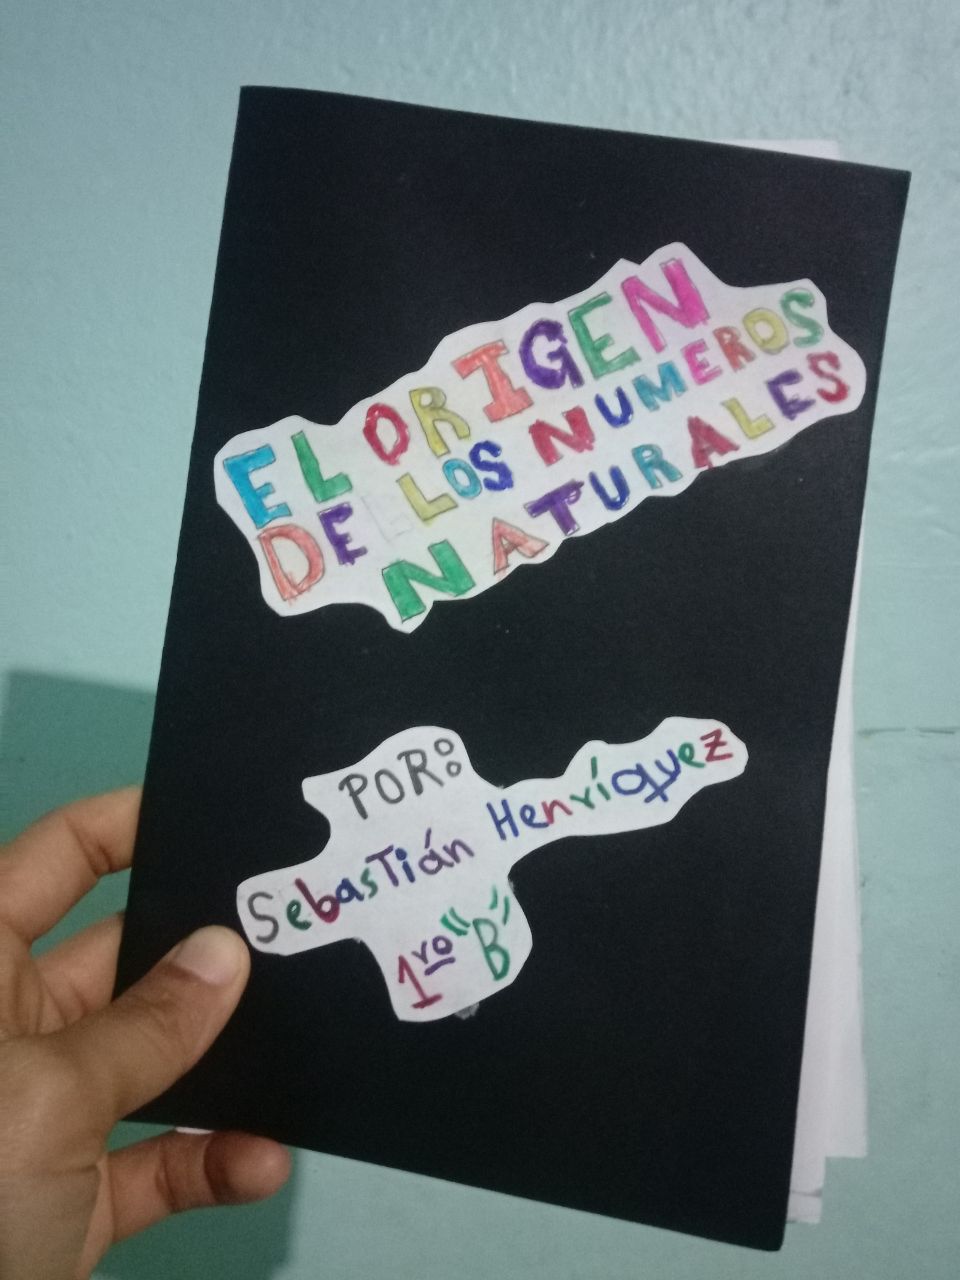 EL ORIGEN
DE LOS NUMEROS
NATURALES
POR:
Sebastián Henríquez
1ro "B"